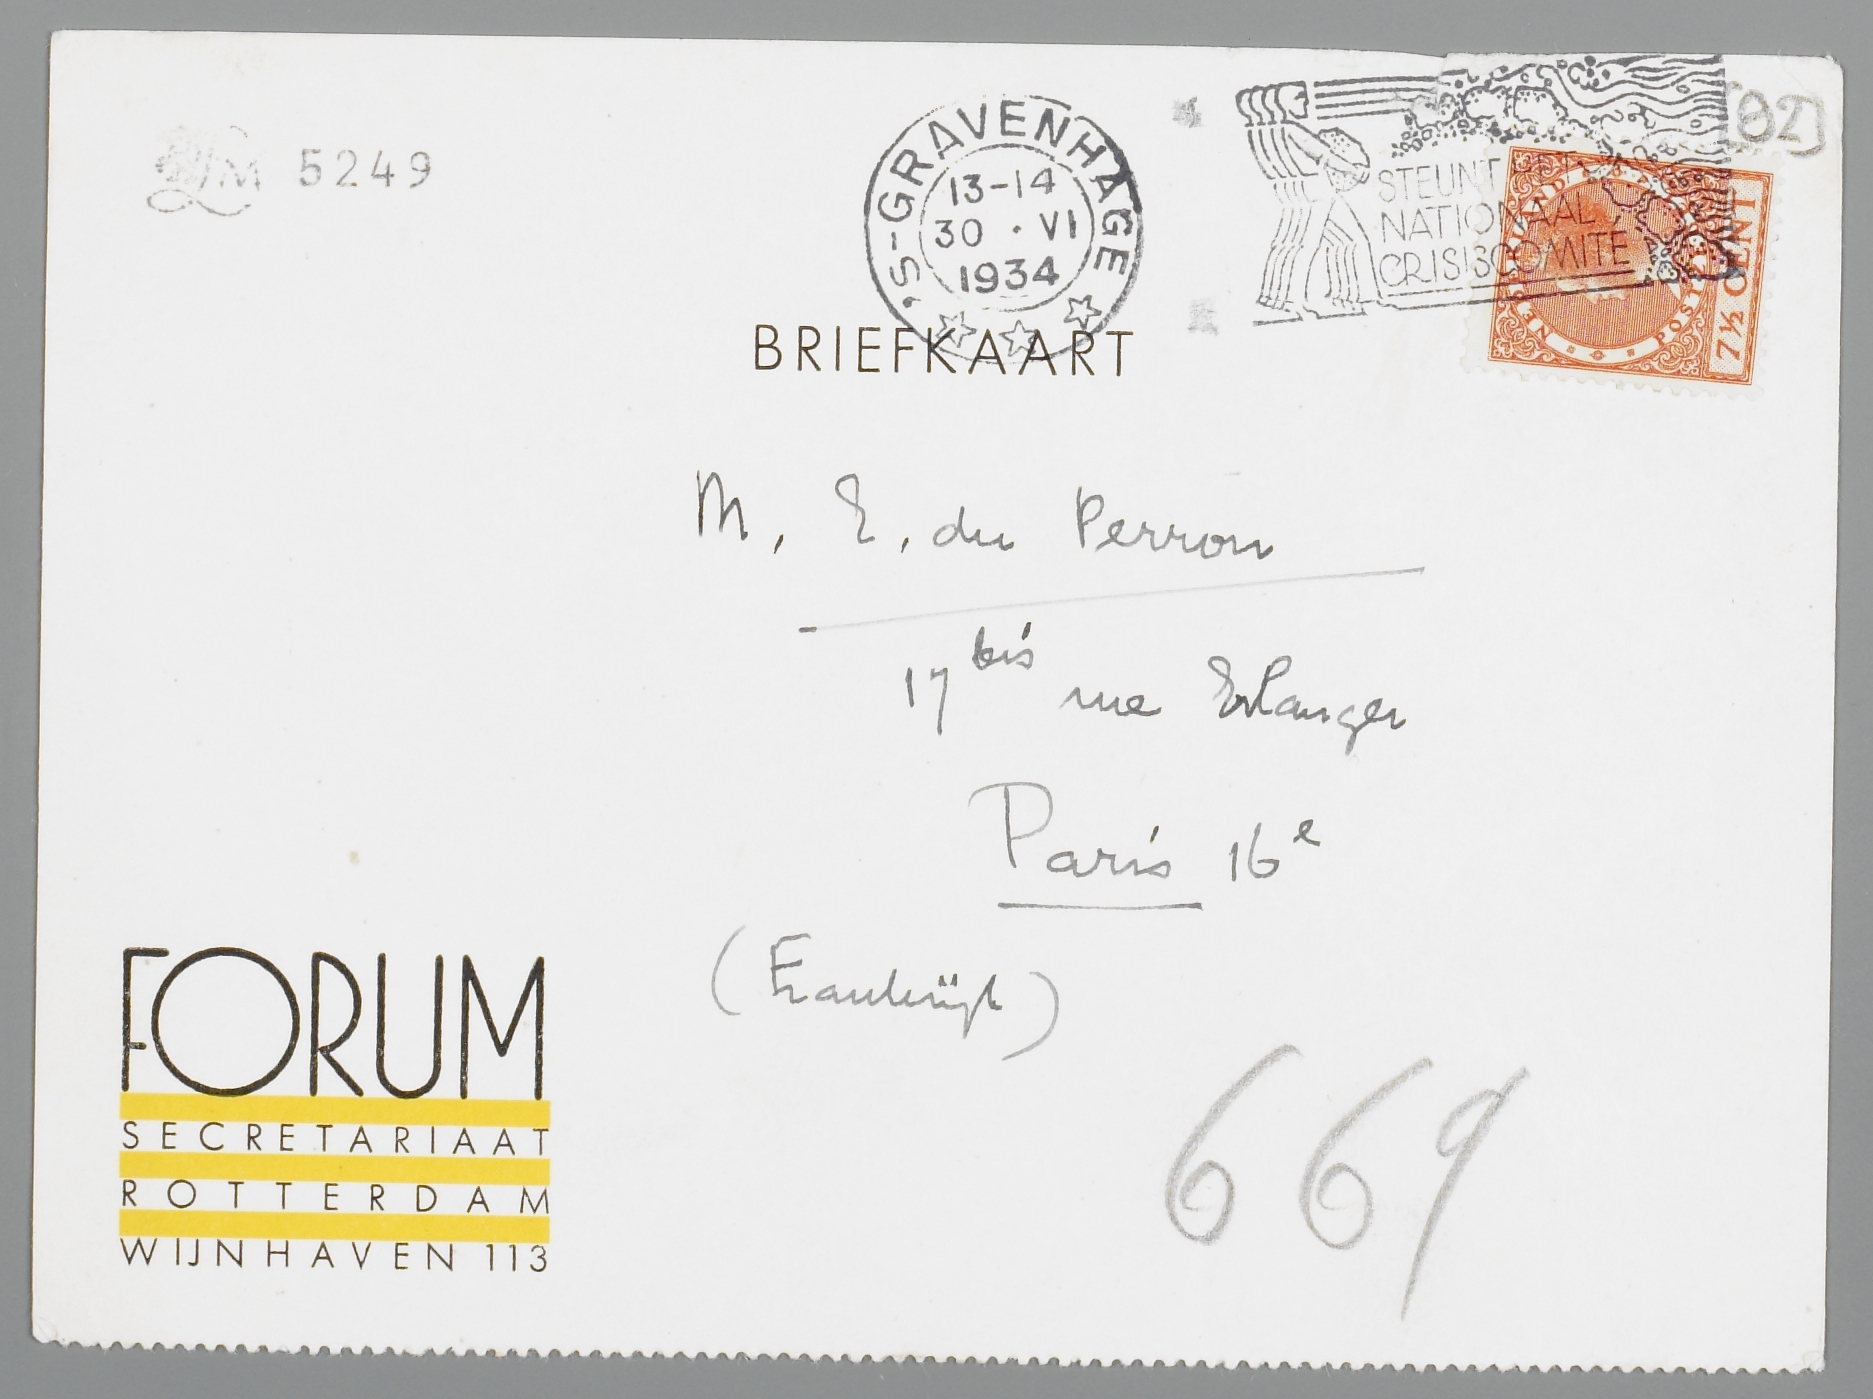 5249
'S-GRAVENHAGE
13-14
30 · VI
1934
STEUNT HET
NATIONAAL
CRISISCOMITE
[82]
NEDERLAND
POSTZEGEL
7½ CENT
BRIEFKAART
M. E. du Perron
17 bis rue Erlanger
Paris 16e
(Frankrijk)
669
FORUM
SECRETARIAAT
ROTTERDAM
WIJNHAVEN 113